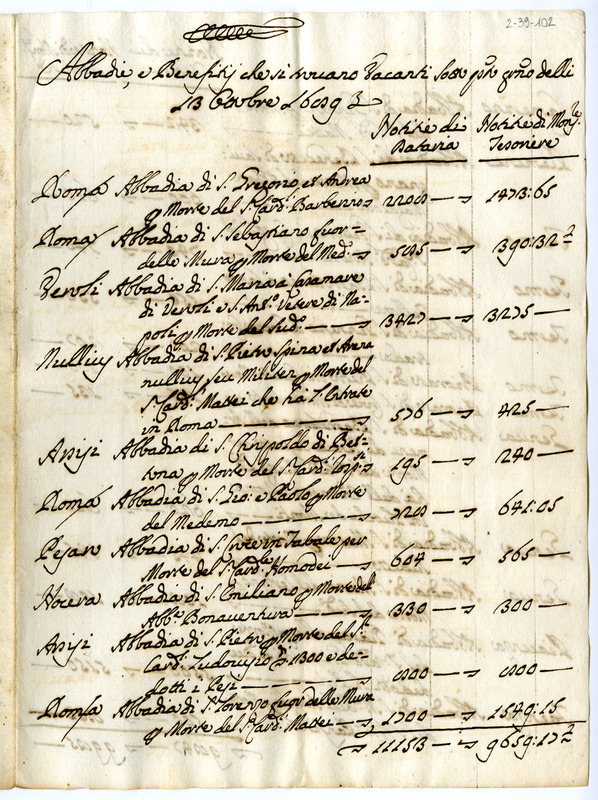 2-39-102
Abbadie, e Benefitij che si trovano Vacanti sotto pnt̃e giorno delli
13 Ottobre 1689
Notitie di Dataria Notitie di Mons.re Tesoriere
Roma Abbadia di S. Gregorio, et Andrea
p Morte del S. Card. Barberino 2208 1473:65
Roma Abbadia di S. Sebastiano fuor=
delle Mura p Morte del Med.o 585 390:32
Veroli Abbadia di S. Maria à Casamare
di Veroli e S. Ant.o Vetere di Na=
poli p Morte del sud.o 3427 3275
Nullius Abbadia di S. Pietro Spina et Arena
nullius seu Militen p Morte del
S. Card. Mattei che hà l'Entrate
in Roma 576 425
Asisi Abbadia di S. Chrispoldo di Bet=
tona p Morte del S. Card. 195 240
Roma Abbadia di S. Gio: e Paolo p Morte
del Medemo 641:05
Pesaro Abbadia di S. Croce in Tabale per
Morte del S. Card.le Homodei 604 565
Nocera Abbadia di S. Emiliano p Morte dell
Abb.e Bonaventura 330 300
Asisi Abbadia di S. Pietro p Morte del S.r
Card. Ludovisio 1300 e de=
dotti i Pesi 800 800
Roma Abbadia di S. Lorenzo fuori delle Mura
p Morte del S. Card. Mattei 1700 1549:15
11153 9659:17